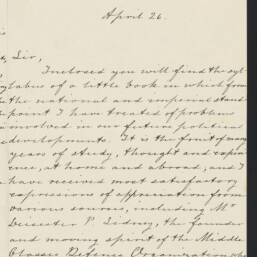 April 26.
Sir,
Inclosed you will find the syl-
labus of a little book in which from
the national and imperial stand-
point I have treated of problems
involved in our future political
developments. It is the fruit of many
years of study, thought and experi-
ence, at home and abroad, and I
have received most satisfactory
expressions of approbation from
various sources, including Mr
P. Sidney, the founder
and moving spirit of the Middle
Classes Defence Organization who